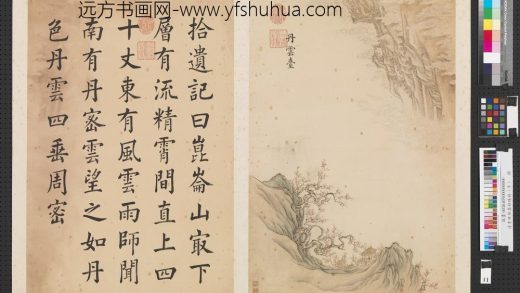 远方书画网-www.yfshuhua.com
丹雲臺
拾遺記曰崑崙山㝡下
層有流精霄間直上四
十丈東有風雲雨師聞
南有丹密雲望之如丹
色丹雲四垂周密